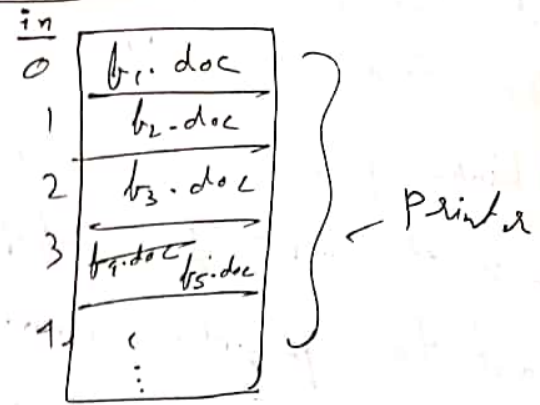 in
0 f1.doc
1 f2.doc
2 f3.doc
3 f4.doc f5.doc
4
Printer